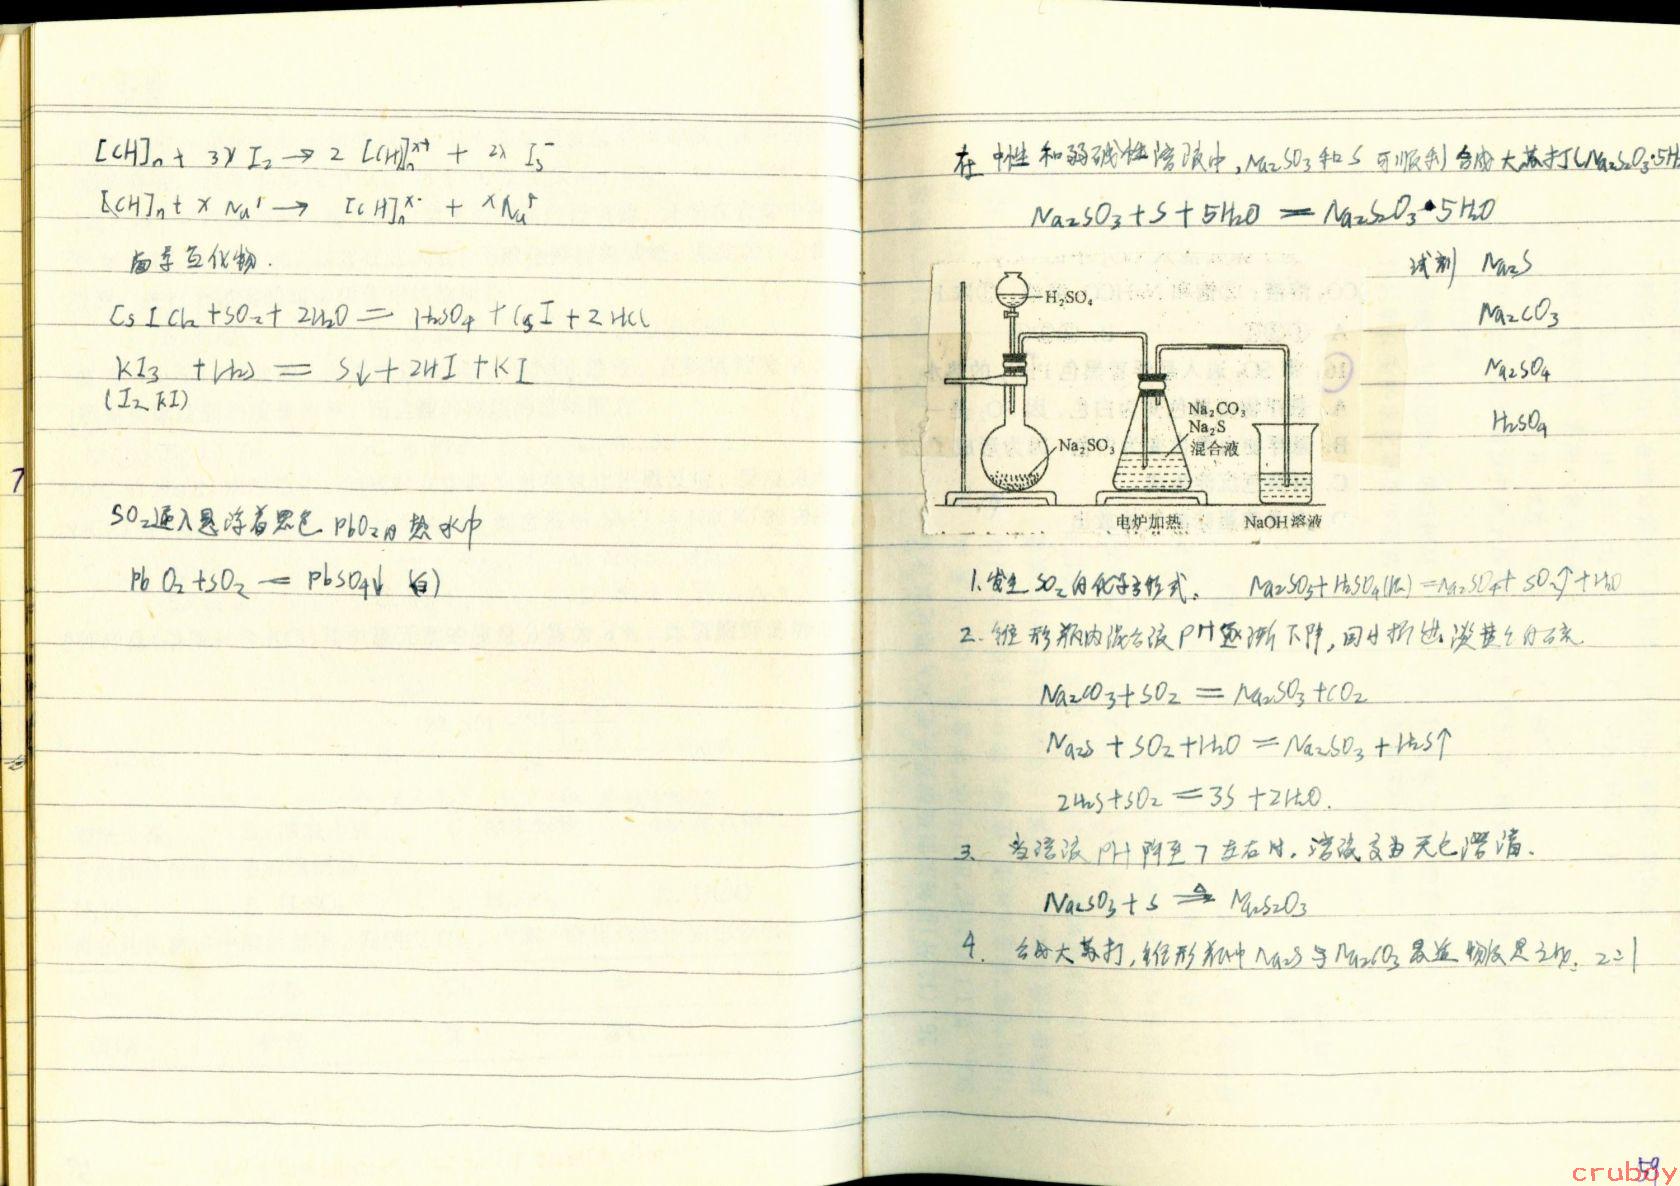 [CH]n + 3x I2 → 2 [CH]n^x+ + 2x I3^-
[CH]n + x Na^+ → [CH]n^x- + x Na^+
卤导互化物.
Cs I Cl2 + SO2 + 2H2O = H2SO4 + CsI + 2HCl
KI3 + H2S = S↓ + 2HI + KI
(I2 KI)
7
SO2通入悬浮着黑色 PbO2的热水中
PbO2 + SO2 = PbSO4↓ (白)
在中性和弱碱性溶液中,Na2SO3和S可顺利合成大苏打(Na2S2O3·5H2
Na2SO3 + S + 5H2O = Na2S2O3·5H2O
试剂 Na2S
Na2CO3
Na2SO4
H2SO4
H2SO4
Na2CO3
Na2S
混合液
Na2SO3
电炉加热
NaOH溶液
1.发生SO2的化学方程式. Na2SO3 + H2SO4(浓) = Na2SO4 + SO2↑ + H2O
2.锥形瓶内混合液PH逐渐下降,同时析出淡黄色的硫
Na2CO3 + SO2 = Na2SO3 + CO2
Na2S + SO2 + H2O = Na2SO3 + H2S↑
2H2S + SO2 = 3S + 2H2O.
3. 当溶液PH降至7左右时,溶液变为无色澄清.
Na2SO3 + S =△= Na2S2O3
4. 合成大苏打,锥形瓶中Na2S与Na2CO3最适物质量之比: 2:1
59
cruboy